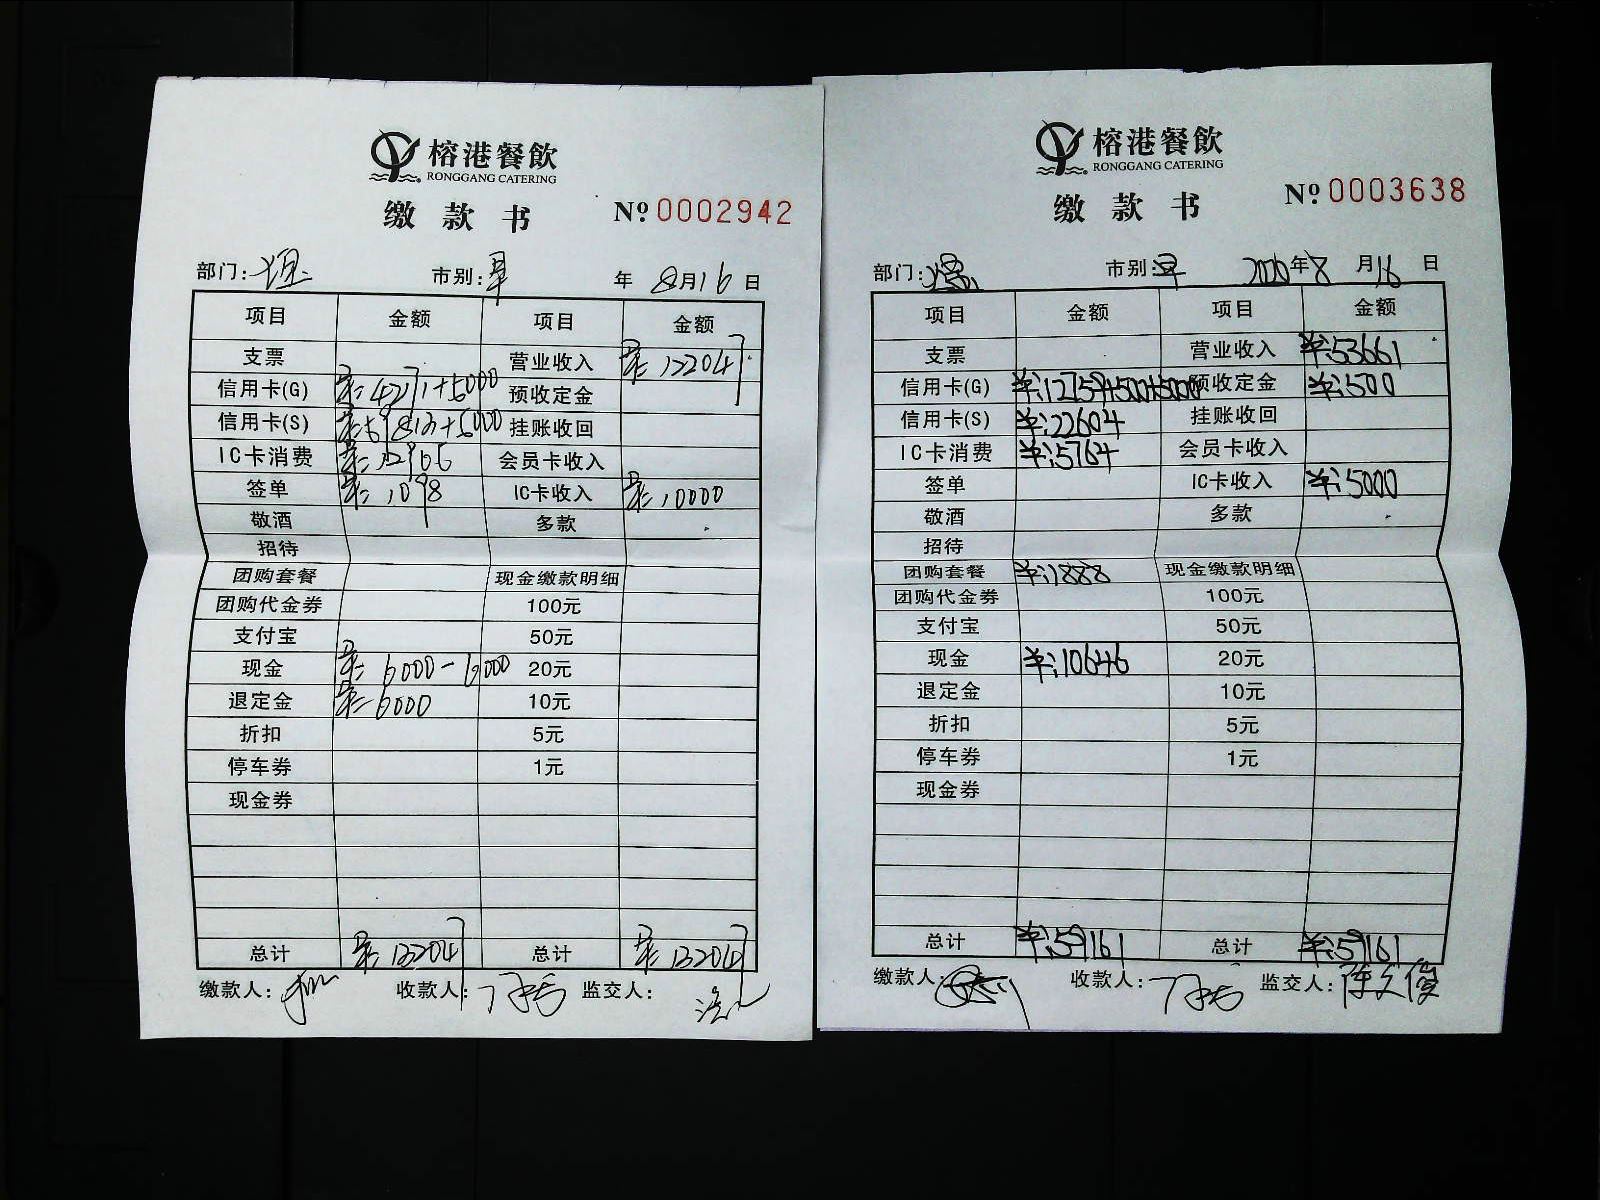 榕港餐飲
RONGGANG CATERING
缴款书
№ 0002942
部门： 市别：早 年 8月16日
项目 金额 项目 金额
支票 营业收入
信用卡(G) 预收定金
信用卡(S) 挂账收回
IC卡消费 会员卡收入
签单 1098 IC卡收入 10000
敬酒 多款
招待
团购套餐 现金缴款明细
团购代金券 100元
支付宝 50元
现金 6000-6000 20元
退定金 6000 10元
折扣 5元
停车券 1元
现金券
总计 总计
缴款人： 收款人： 监交人：
榕港餐飲
RONGGANG CATERING
缴款书
№ 0003638
部门： 市别：早 2020年8月16日
项目 金额 项目 金额
支票 营业收入 ¥:53661
信用卡(G) ¥:12759+500+5000 预收定金 ¥:500
信用卡(S) ¥:22604 挂账收回
IC卡消费 ¥:5764 会员卡收入
签单 IC卡收入 ¥:5000
敬酒 多款
招待
团购套餐 ¥:1888 现金缴款明细
团购代金券 100元
支付宝 50元
现金 ¥:10646 20元
退定金 10元
折扣 5元
停车券 1元
现金券
总计 ¥:59161 总计 ¥:59161
缴款人： 收款人： 监交人：